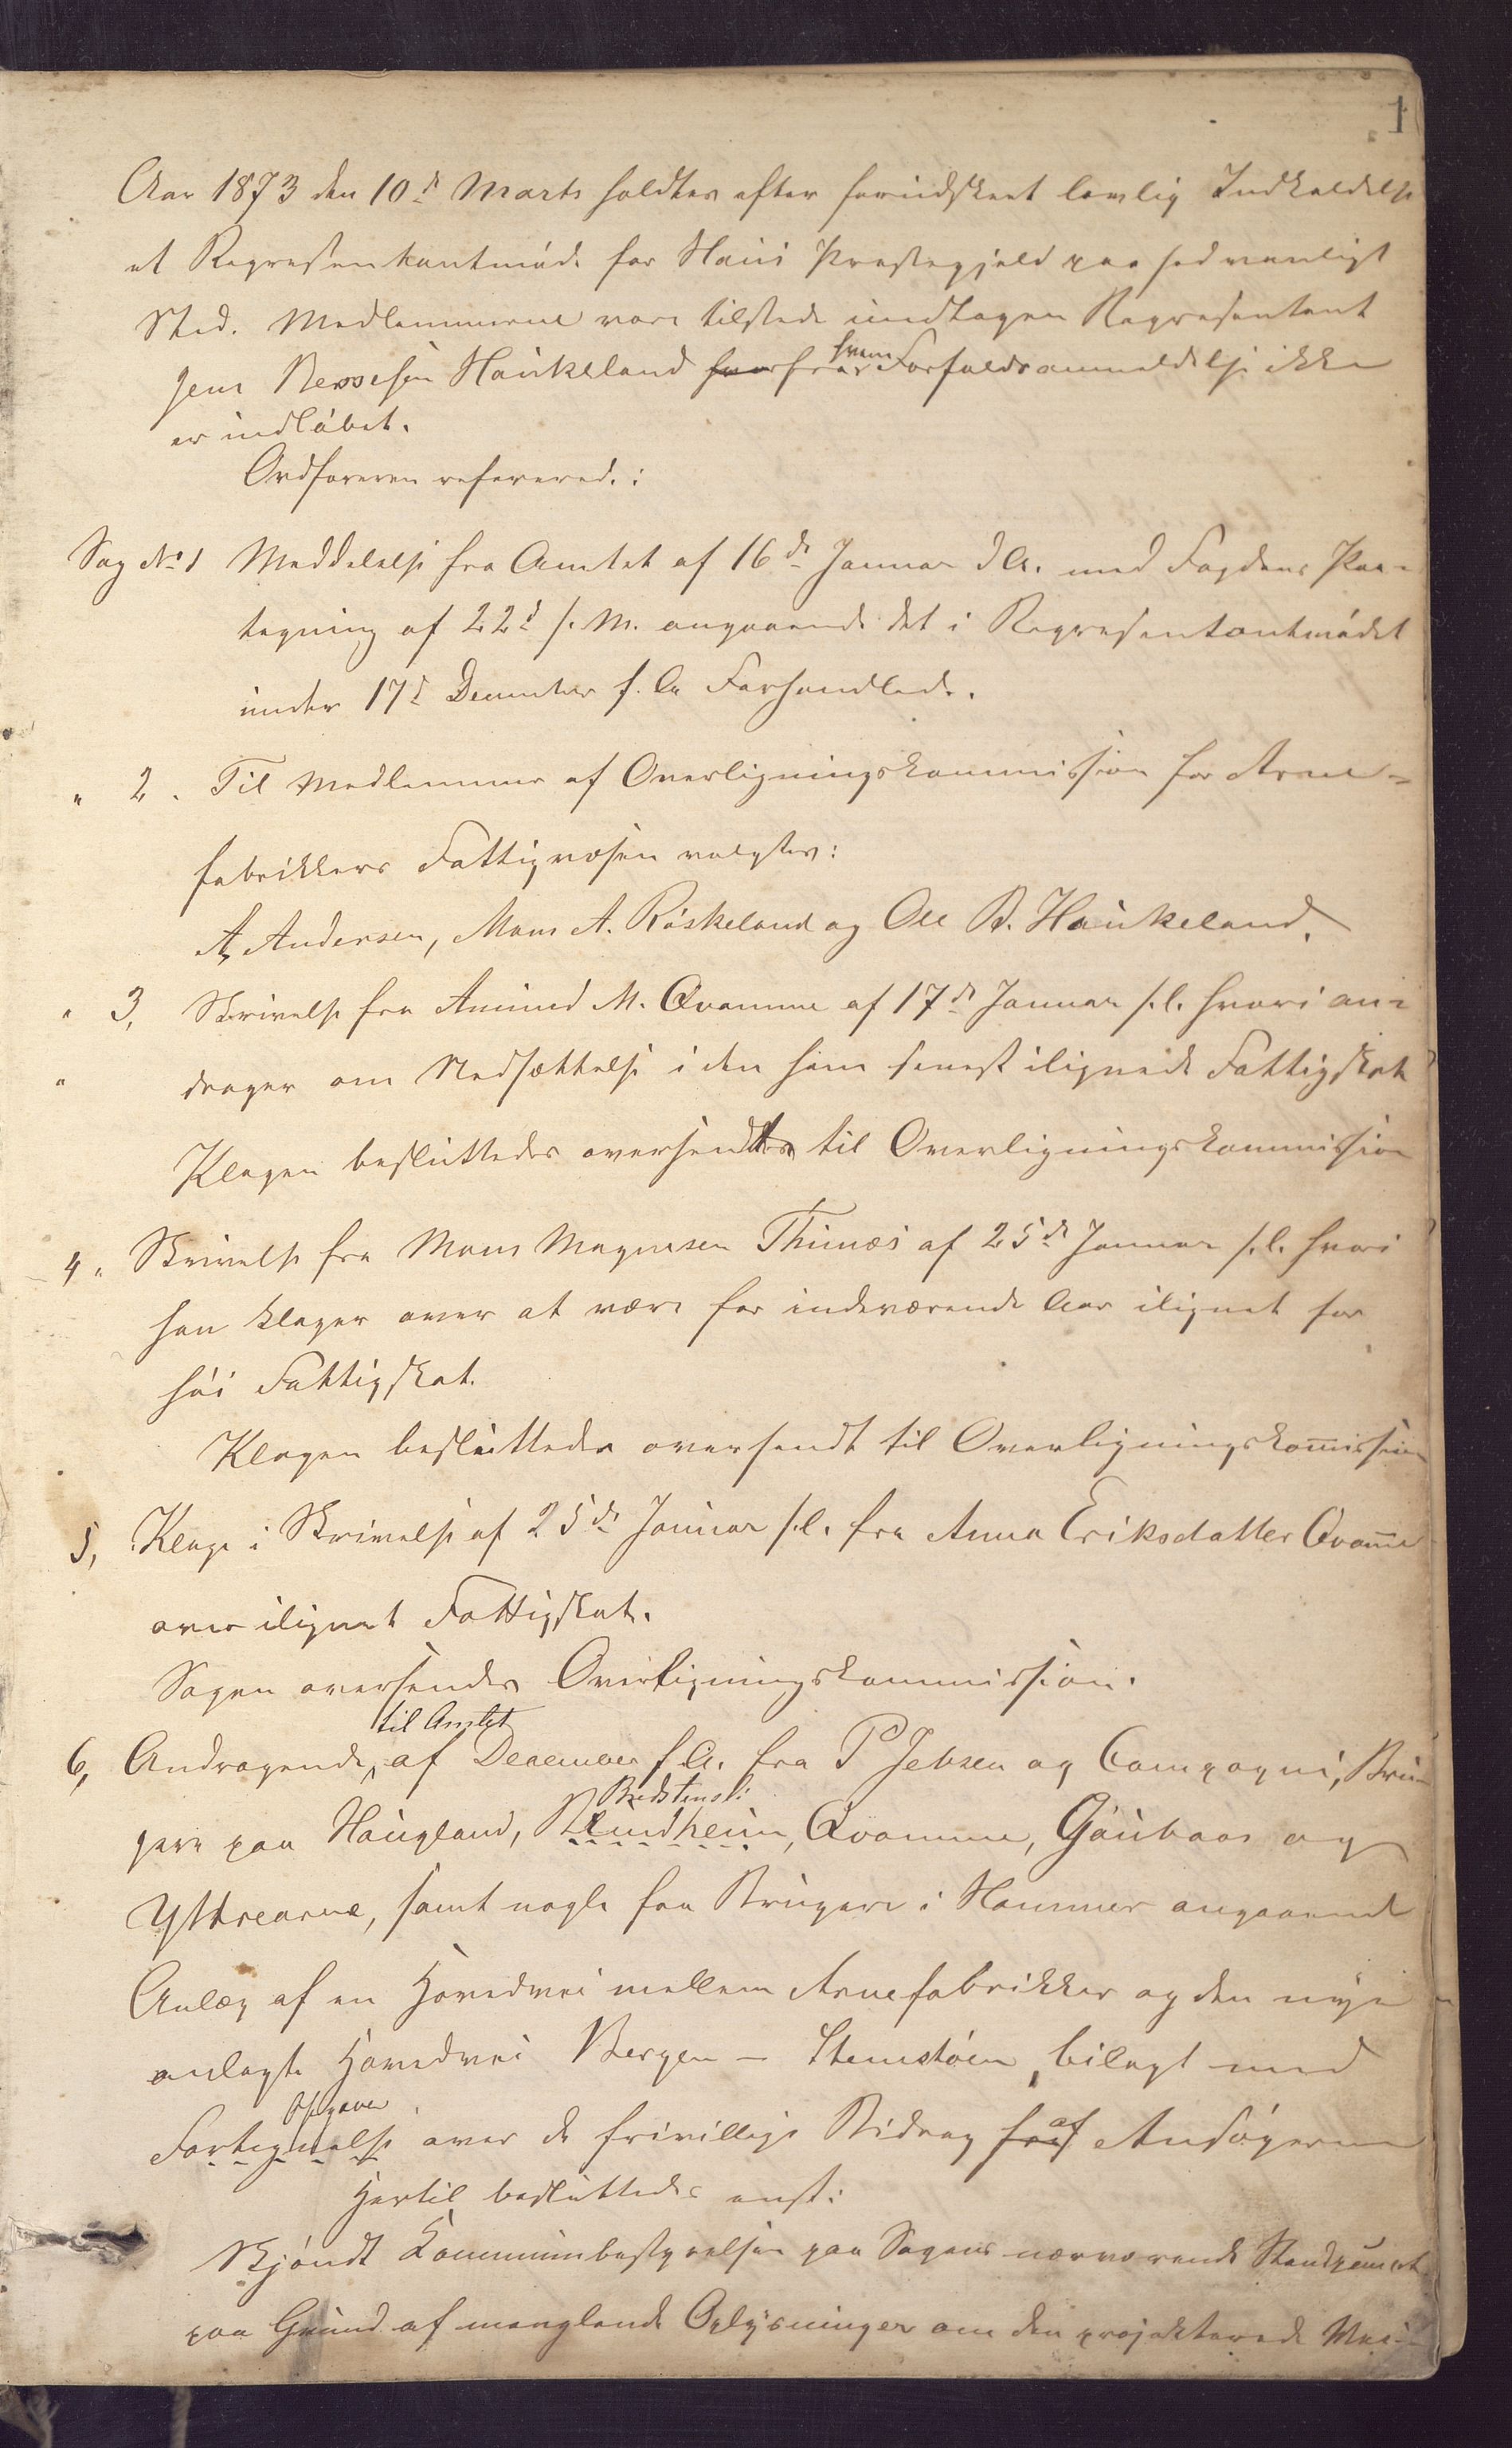 1
Aar 1873 den 10de Marts holdtes efter forudskeet lovlig Indkaldelse
et Repræsentantmøde for Haus Prestegjeld paa sedvanligt
Sted. Medlemmerne vare tilstede undtagen Repræsentant
Jens Haukeland hvem Forfaldsanmeldelse ikke
er indløbet.
Ordføreren refererede:
Sag No 1 Meddelelse fra Amtet af 16de Januar d A. med Fogdens Paa-
tegning af 22d s. M. angaaende det i Repræsentantmødet
under 17d December f. A. Forhandlede.
" 2. Til Medlemmer af Overligningskommission for Arne-
fabrikkers Fattigvæsen valgtes:
A. Andersen, Mons A. Röskeland og Ole B. Haukeland.
" 3, Skrivelse fra Amund M. Qvamme af 17de Januar s.l. hvori an-
" drager om Nedsættelse i den ham senest ilignede Fattigskat
Klagen besluttedes oversendt til Overligningskommission
4. Skrivelse fra Mons Magnesen Thunæs af 25de Januar s.l. hvori
han klager over at være for indeværende Aar ilignet for
høi Fattigskat.
Klagen besluttedes oversendt til Overligningskommission
5, Klage i Skrivelse af 25de Januar s.l. fra Anna Eriksdatter Qvamme
over ilignet Fattigskat.
Sagen oversendes Overligningskommission.
til Amtet
6, Andragende af December f.A. fra P Jebsen og Compagni, Bru-
Bredstensli
gere paa Haugland, Rundheim, Qvamme, Gaubaas og
Yttrearne, samt nogle faa Brugere i Hammer angaaende
Anlæg af en Hovedvei mellem Arnefabrikker og den nye
anlagte Hovedvei Bergen - Stemstöen, bilagt med
Opgaver
Fortegnelse over de frivillige Bidrag fra af Ansøgerne
Hertil besluttedes enst:
Skjøndt Kommunebestyrelsen paa Sagens nærværende Standpunkt
paa Grund af manglende Oplysninger om den projekterede Vei-